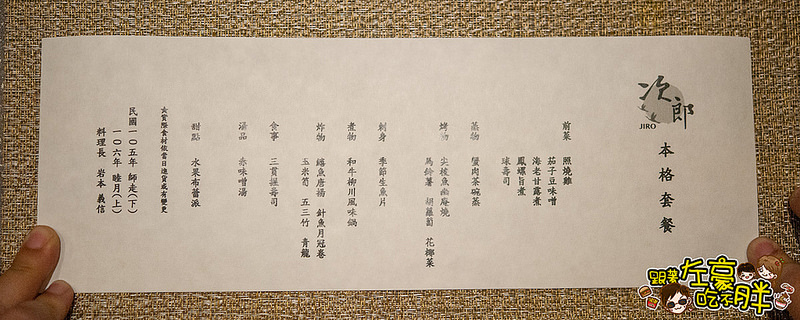 次郎
JIRO
本格套餐
前菜 照燒雞
茄子豆味噌
海老甘露煮
鳳螺旨煮
球壽司
蒸物 蟹肉茶碗蒸
烤物 尖梭魚幽庵燒
馬鈴薯 胡蘿蔔 花椰菜
刺身 季節生魚片
煮物 和牛柳川風味鍋
炸物 鱔魚唐揚 針魚月冠卷
玉米筍 五三竹 青龍
食事 三貫握壽司
湯品 赤味噌湯
甜點 水果布蕾派
實際食材依當日進貨或有變更
民國一〇五年 師走(下)
一〇六年 睦月(上)
料理長 岩本 義信
跟著左豪吃不胖